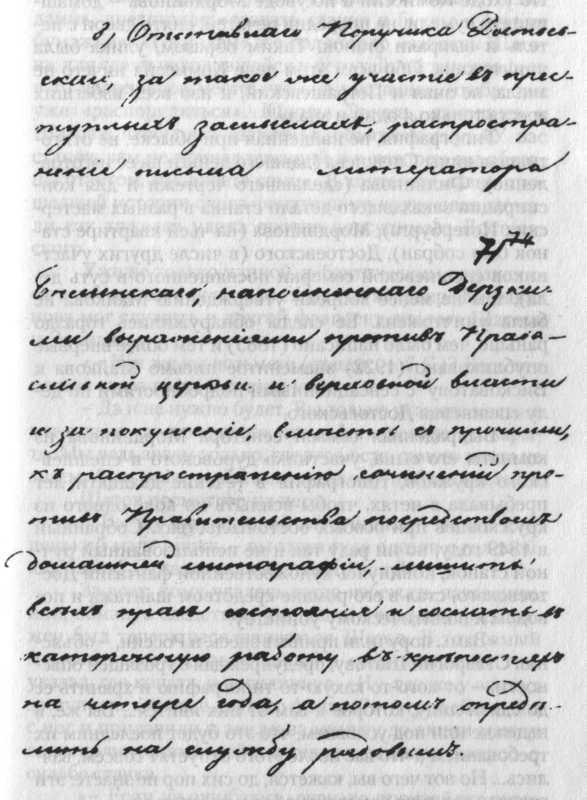 б., Отставнаго Поручика Достоев-
скаго, за такое же участіе въ прес-
тупныхъ замыслахъ, распростра-
неніе письма литератора
74
Бѣлинскаго, наполненнаго дерзки-
ми выраженіями противъ Право-
славной церкви и верховной власти
и за покушеніе, вмѣстѣ съ прочими,
къ распространенію сочиненій про-
тивъ Правительства посредствомъ
домашней литографіи, лишить
всѣхъ правъ состоянія и сослать въ
каторжную работу въ крѣпостяхъ
на четыре года, а потомъ опредѣ-
лить на службу рядовымъ.